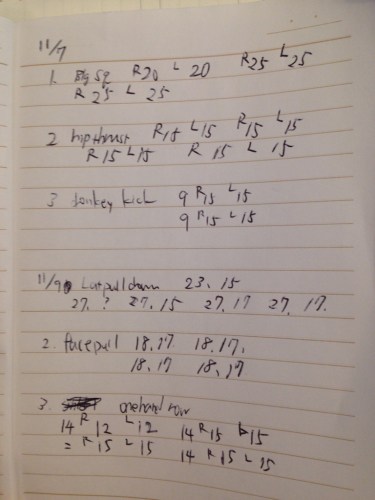 11/7
1. Blg sq R20 L 20 R25 L25
R 25 L 25
2 hip thrust R15 L15 R15 L15
R15 L15 R 15 L 15
3 donkey kick 9 R15 L15
9 R15 L15
11/9 Lat pull down 23. 15
27. ? 27. 15 27. 17 27. 17.
2. face pull 18.17 18.17.
18.17 18.17
3. one hand row
14 R12 L12 14 R15 L15
= R15 L15 14 R15 L15